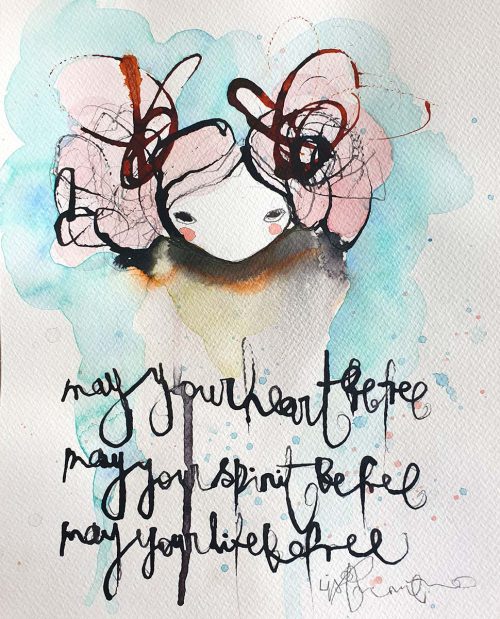 may your heart be free
may your spirit be free
may your life be free